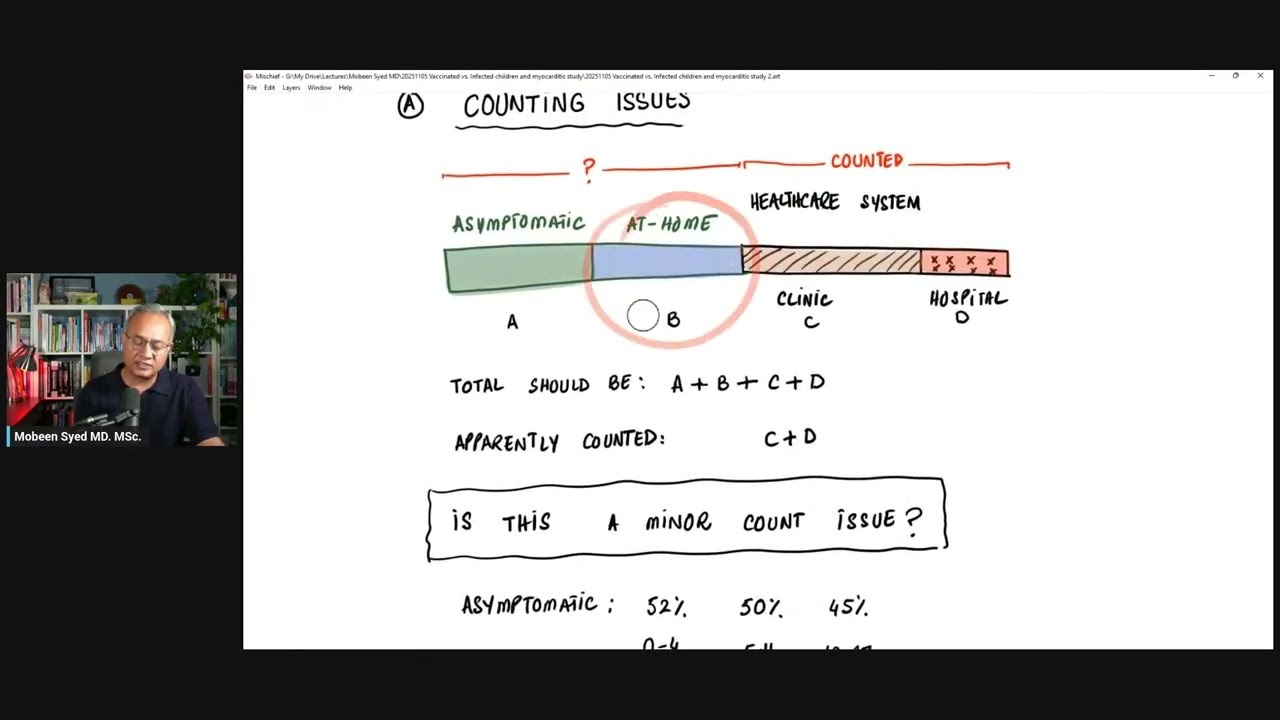 Mischief - G:\My Drive\Lectures\Mobeen Syed MD\20251105 Vaccinated vs. Infected children and myocarditis study\20251105 Vaccinated vs. Infected children and myocarditis study 2.art
File Edit Layers Window Help
A COUNTING ISSUES
? COUNTED
HEALTHCARE SYSTEM
ASYMPTOMATIC AT-HOME
CLINIC HOSPITAL
A B C D
TOTAL SHOULD BE: A + B + C + D
APPARENTLY COUNTED: C + D
Mobeen Syed MD. MSc.
IS THIS A MINOR COUNT ISSUE?
ASYMPTOMATIC: 52% 50% 45%
0-4